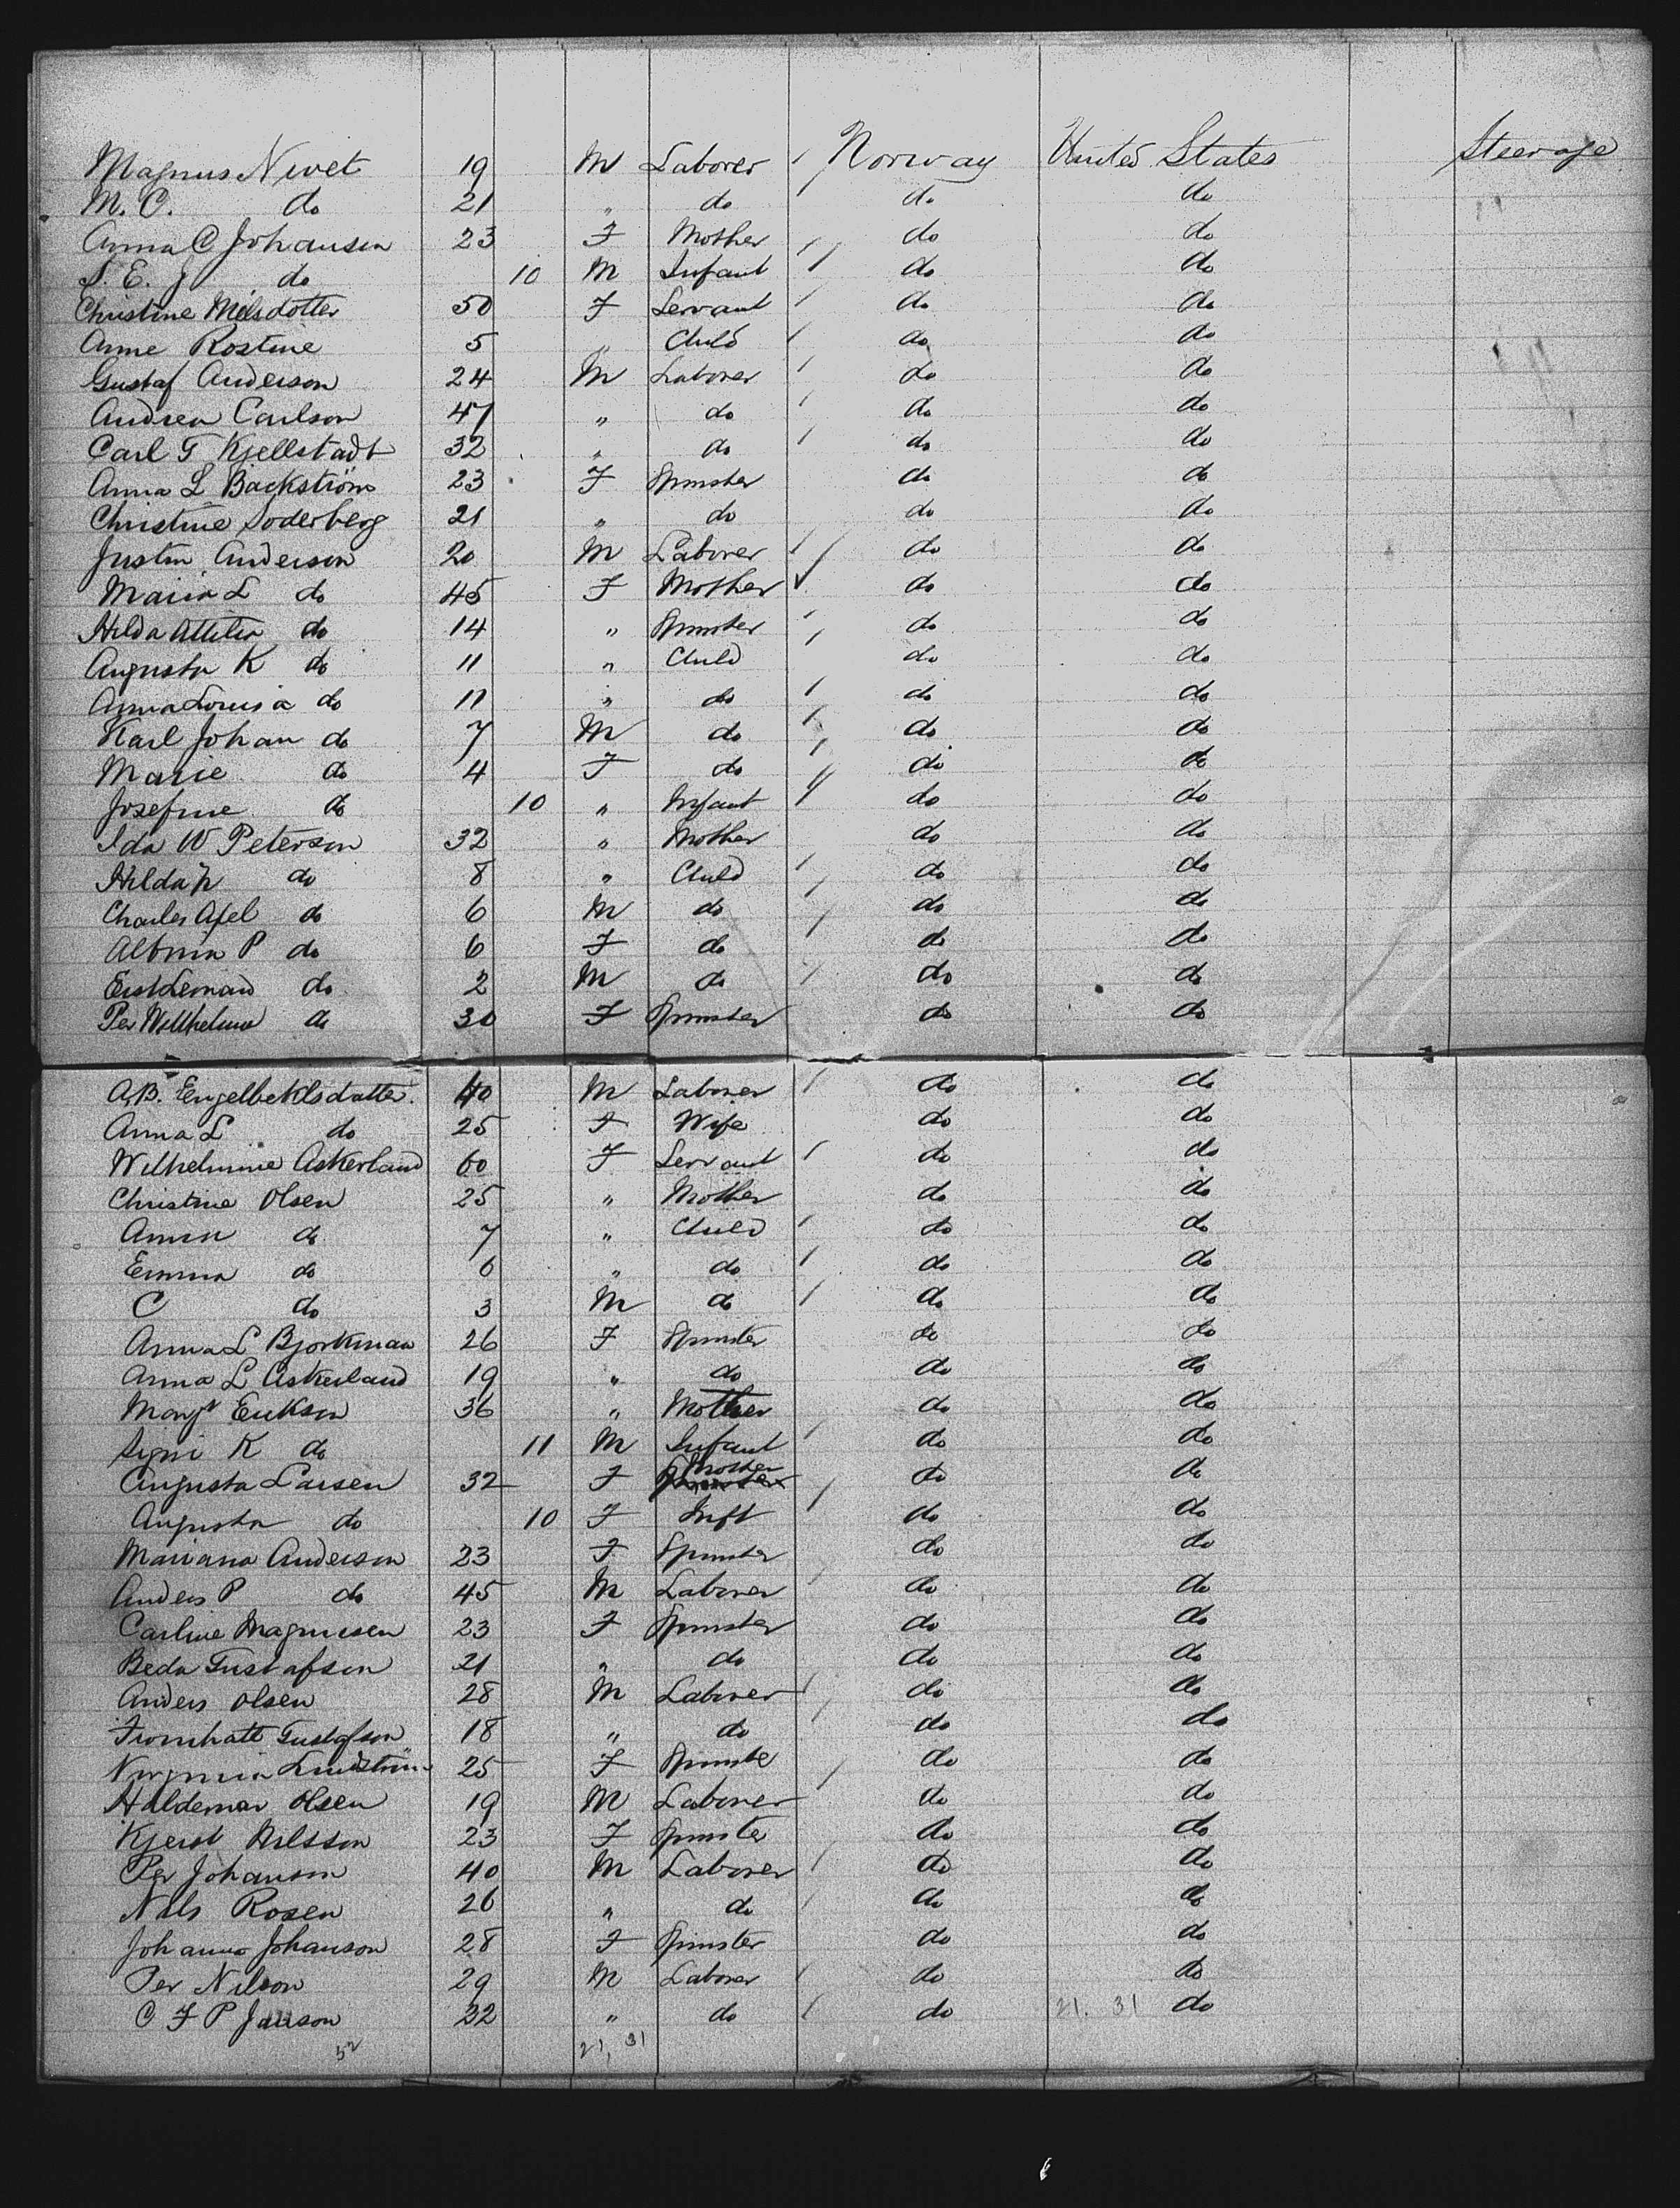 Magnus Nivet 19 M Laborer Norway United States Steerage
M. C. do 21 " do do do
Anna C Johansen 23 F Mother do do
S. E. J do 10 M Infant do do
Christine Nilsdotter 50 F Servant do do
Anne Rostine 5 " Child do do
Gustaf Anderson 24 M Laborer do do
Andrea Carlson 47 " do do do
Carl F Kjellstadt 32 " do do do
Anna L Backström 23 F Spinster do do
Christine Soderberg 21 " do do do
Justin Anderson 20 M Laborer do do
Maria L do 45 F Mother do do
Hilda Attilia do 14 " Spinster do do
Augusta K do 11 " Child do do
Anna Louisa do 11 " do do do
Karl Johan do 7 M do do do
Marie do 4 F do do do
Josefine do 10 " Infant do do
Ida W Peterson 32 " Mother do do
Hilda do 8 " Child do do
Charles Axel do 6 M do do do
Albina P do 6 F do do do
do 2 M do do do
Per Wilhelmine do 30 F Spinster do do
A.B. Engelbektsdatter. 40 M Laborer do do
Anna L do 25 F Wife do do
Wilhelmine Askerland 60 F Servant do do
Christine Olsen 25 " Mother do do
Anna do 7 " Child do do
Emma do 6 " do do do
C do 3 M do do do
Anna L Bjorkman 26 F Spinster do do
Anna L Askerland 19 " do do do
Margt Erikson 36 " Mother do do
Signi K do 11 M Infant do do
Augusta Larsen 32 F Mother do do
Augusta do 10 F Inft do do
Mariana Anderson 23 F Spinster do do
Anders P do 45 M Laborer do do
Carline Magnusen 23 F Spinster do do
Beda Gustafson 21 " do do do
Anders Olsen 28 M Laborer do do
Gustafson 18 " do do do
Lindström 25 F Spinster do do
Haldemar Olsen 19 M Laborer do do
Kjerst Nilsson 23 F Spinster do do
Per Johanson 40 M Laborer do do
Nils Rosen 26 " do do do
Johanna Johanson 28 F Spinster do do
Per Nilson 29 M Laborer do do
C F P Janson 22 " do do 21. 31 do
52 21, 31